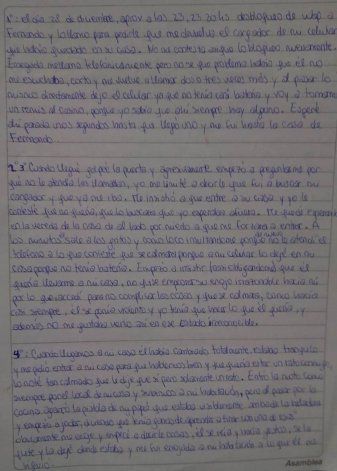 1º: el día 28 de diciembre, aprox a las 23, 23:20 hs desbloqueo de wtsp a
Fernando y lo llamo para pedirle que me devuelva el cargador de mi celular
que había quedado en su casa. No me contesta aunque lo bloqueo nuevamente.
Enseguida me llama telefonicamente pero no se que problema había que el no
me escuchaba, corta y me vuelve a llamar dos o tres veces más y al pasar lo
mismo directamente dejo el celular ya que no tenía casi batería y voy a tomarme
un remis al casino, porque yo sabía que ahí siempre hay alguno. Esperé
ahí parada unos segundos hasta que llegó uno y me fui hasta la casa de
Fernando.
2º 3º Cuando llegué golpeé la puerta y agresivamente empezó a preguntarme por
que no le atendía las llamadas, yo me limité a decirle que fui a buscar mi
cargador y que ya me iba. Me insistió a que entre a su casa y yo le
contesté que no quería, que lo buscara que yo esperaba afuera. Me quedé esperando
en la vereda de la casa de al lado por miedo a que me forzara a entrar. A
los minutos sale a los gritos y como loco insultandome porque no le atendí el
teléfono a lo que contesté que se calmara porque a mi celular lo dejé en mi
casa porque no tenía batería. Empezó a insistir
quería llevarme a mi casa, no quise empeorar su enojo
por lo que accedí para no complicar las cosas y que se calmara, como hacía
casi siempre, el se ponía violento y yo tenía que hacer lo que él quería, y
además no me gustaba verlo así en ese estado
4º: Cuando llegamos a mi casa él había cambiado totalmente, estaba tranquilo
y me pidió entrar a mi casa para que hablemos bien y que quería estar un rato conmigo,
lo noté tan calmado que le dije que sí pero solamente un rato. Entró la moto como
siempre por el local de mi casa y entramos a mi habitación, pero al pasar por la
cocina agarró la pistola de mi papá que estaba
y empezó a
me enojé y empecé a decirle cosas, él se reía y hacía gestos, se la
quité y la dejé donde estaba y me fui enojada a mi habitación a lo que él me
Asamblea